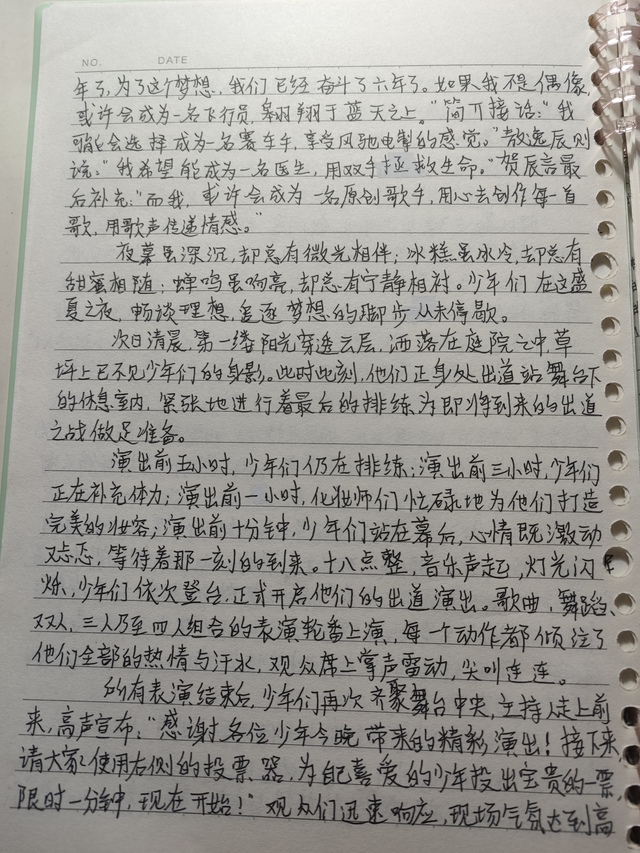 NO.
DATE
年了,为了这个梦想,我们已经奋斗了六年了。如果我不是偶像,
或许会成为一名飞行员,翱翔于蓝天之上。"简亓接话:"我
可能会选择成为一名赛车手,享受风驰电掣的感觉。"敖逸辰则
说:"我希望能成为一名医生,用双手拯救生命。"贺辰言最
后补充:"而我,或许会成为一名原创歌手,用心去创作每一首
歌,用歌声传递情感。"
夜幕虽深沉,却总有微光相伴;冰糕虽冰冷,却总有
甜蜜相随;蝉鸣虽响亮,却总有宁静相衬。少年们在这盛
夏之夜,畅谈理想,追逐梦想的脚步从未停歇。
次日清晨,第一缕阳光穿透云层,洒落在庭院之中,草
坪上已不见少年们的身影。此时此刻,他们正身处出道站舞台下
的休息室内,紧张地进行着最后的排练,为即将到来的出道
之战做足准备。
演出前五小时,少年们仍在排练;演出前三小时,少年们
正在补充体力;演出前一小时,化妆师们忙碌地为他们打造
完美的妆容;演出前十分钟,少年们站在幕后,心情既激动
又忐忑,等待着那一刻的到来。十八点整,音乐声起,灯光闪
烁,少年们依次登台,正式开启他们的出道演出。歌曲、舞蹈、
双人,三人乃至四人组合的表演轮番上演,每一个动作都倾注了
他们全部的热情与汗水,观众席上掌声雷动,尖叫连连。
所有表演结束后,少年们再次齐聚舞台中央,主持人走上前
来,高声宣布:"感谢各位少年今晚带来的精彩演出!接下来,
请大家使用右侧的投票器,为自己喜爱的少年投出宝贵的一票,
限时一分钟,现在开始!"观众们迅速响应,现场气氛达到高